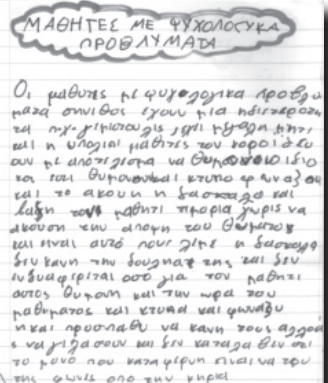 ΜΑΘΗΤΕΣ ΜΕ ΨΥΧΟΛΟΓΥΚΑ
ΠΡΟΘΛΥΜΑΤΑ
Οι μαθυτες με ψυχολογικα προβλυ
ματα σηνιθος εχουν μια ηδιετεροτη
τα πχ εχει μεγαλη μητι
και η υπολιπι μαθητες τον κοροιδευ
ουν με αποτελεσμα να θυμονει ο ιδιο
κτυπα φωναζει
και το ακουη η δασκαλα και
βαζη τον μαθητι τιμορια χωρις να
ακουση την αποψη του θυματος
και ειναι αυτο που λεμε η δασκαλα
δεν κανη την δουλεια της και δεν
ενδιαφερεται οσο για τον μαθητι
αυτος θυμονη και την ωρα του
μαθυματος και κτυπα και φωναζη
η και προσπαθυ να κανη τους αλλου
ς να γιλασουν και δεν καταλαθενει
το μονο που καταφερνη ειναι να του
της φωνες απο την κηρια